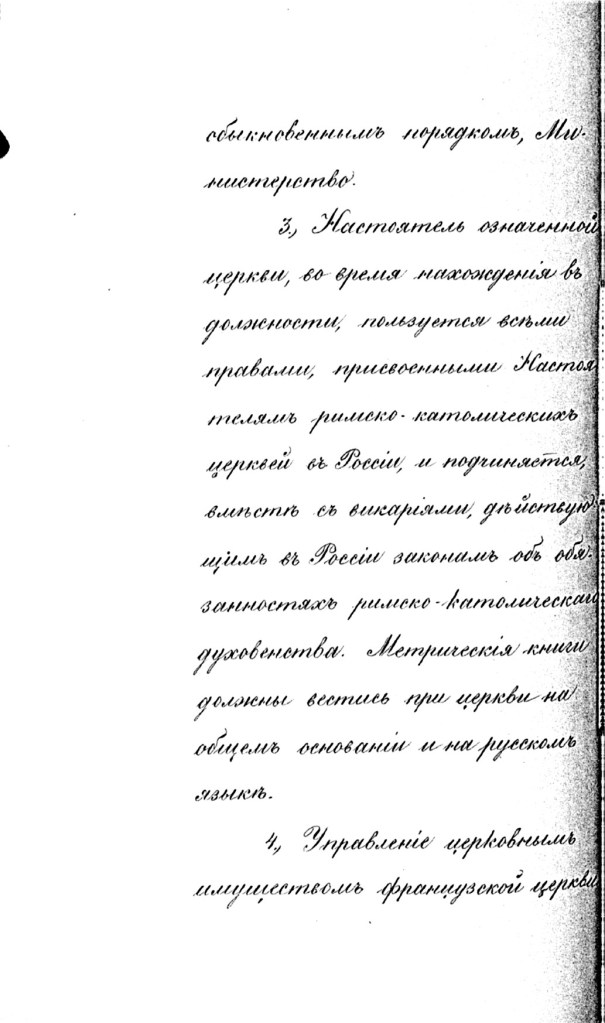 обыкновеннымъ порядкомъ, Ми-
нистерство.
3., Настоятель означенной
церкви, во время нахожденія въ
должности, пользуется всѣми
правами, присвоенными Настоя
телямъ римско-католическихъ
церквей въ Россіи, и подчиняется,
вмѣстѣ съ викаріями, дѣйствую
щимъ въ Россіи законамъ объ обя-
занностяхъ римско-католическаго
духовенства. Метрическія книги
должны вестись при церкви на
общемъ основаніи и на русскомъ
языкѣ.
4., Управленіе церковнымъ
имуществомъ французской церкви